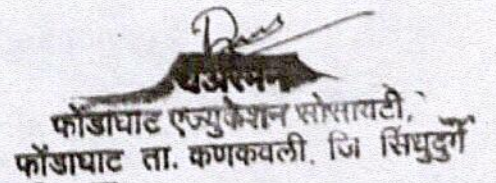 चेअरमन
फोंडाघाट एज्युकेशन सोसायटी,
फोंडाघाट ता. कणकवली, जि सिंधुदुर्ग